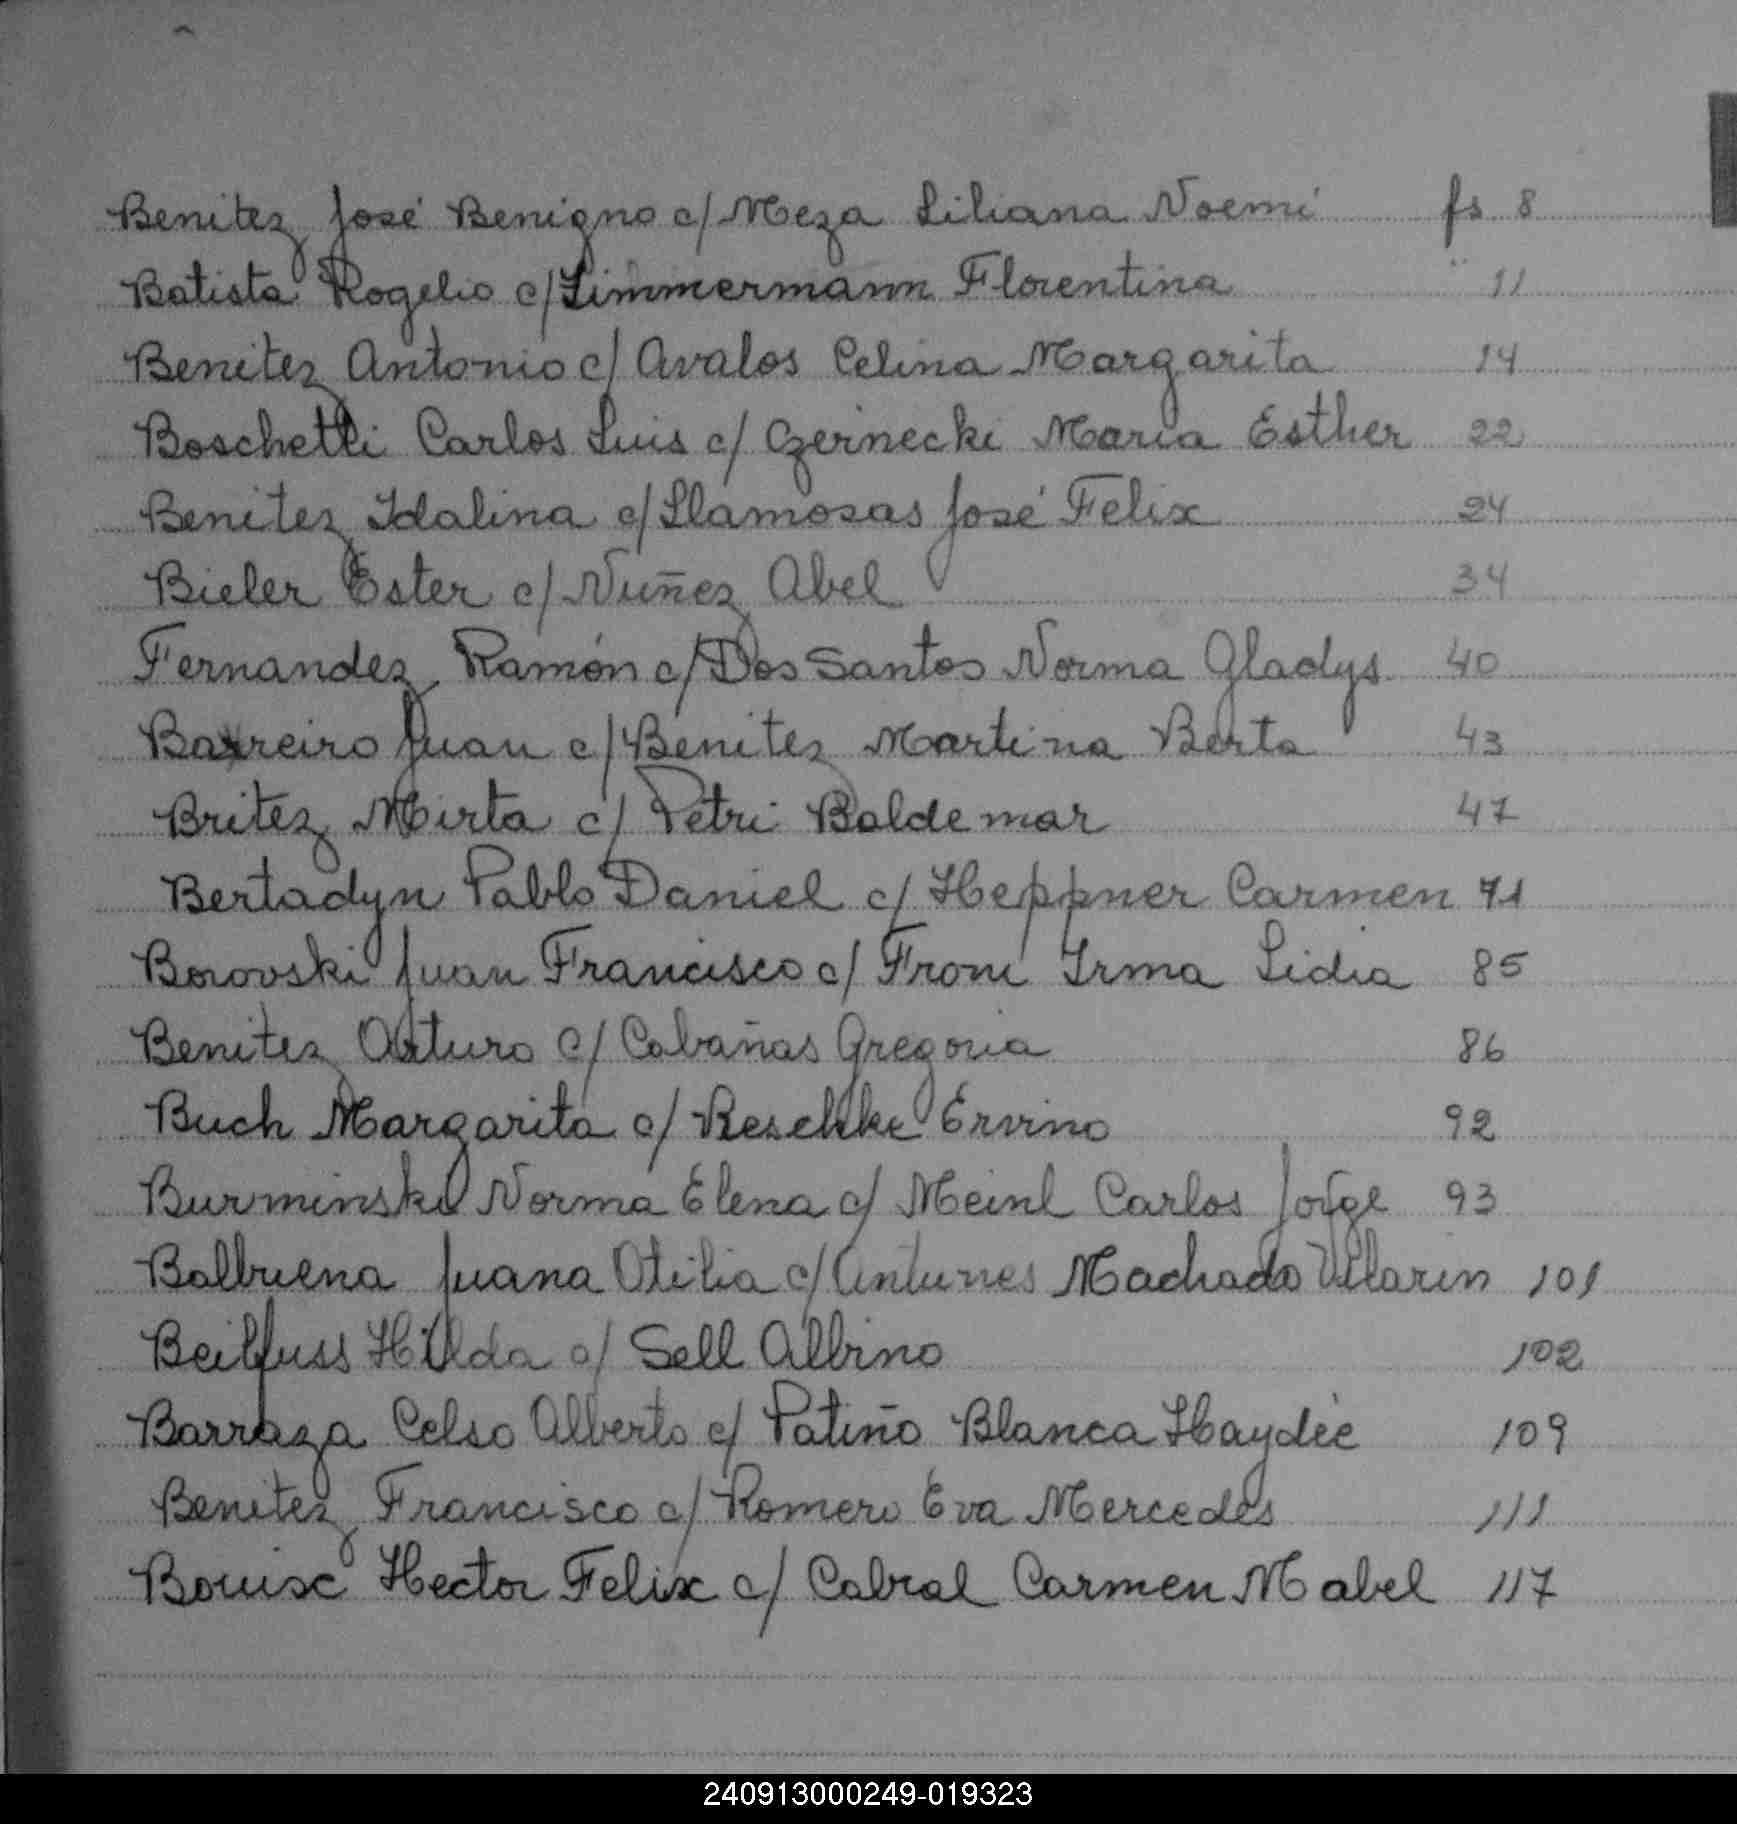 Benitez José Benigno c/ Meza Liliana Noemi fs 8
Batista Rogelio c/ Zimmermann Florentina " 11
Benitez Antonio c/ Avalos Celina Margarita 14
Boschetti Carlos Luis c/ Czernecki Maria Esther 22
Benitez Idalina c/ Llamosas José Felix 24
Bieler Ester c/ Nuñez Abel 34
Fernandez Ramón c/ Dos Santos Norma Gladys 40
Barreiro Juan c/ Benitez Martina Berta 43
Britez Mirta c/ Petri Baldemar 47
Bertadyn Pablo Daniel c/ Heppner Carmen 71
Borovski Juan Francisco c/ From Irma Lidia 85
Benitez Arturo c/ Cabañas Gregoria 86
Buch Margarita c/ Reschke Ervino 92
Burminski Norma Elena c/ Meinl Carlos Jorge 93
Balbuena Juana Otilia c/ Antunes Machado Vilarin 101
Beilfuss Hilda c/ Sell Albino 102
Barraza Celso Alberto c/ Patiño Blanca Haydée 109
Benitez Francisco c/ Romero Eva Mercedes 111
Bouix Hector Felix c/ Cabral Carmen Mabel 117
240913000249-019323